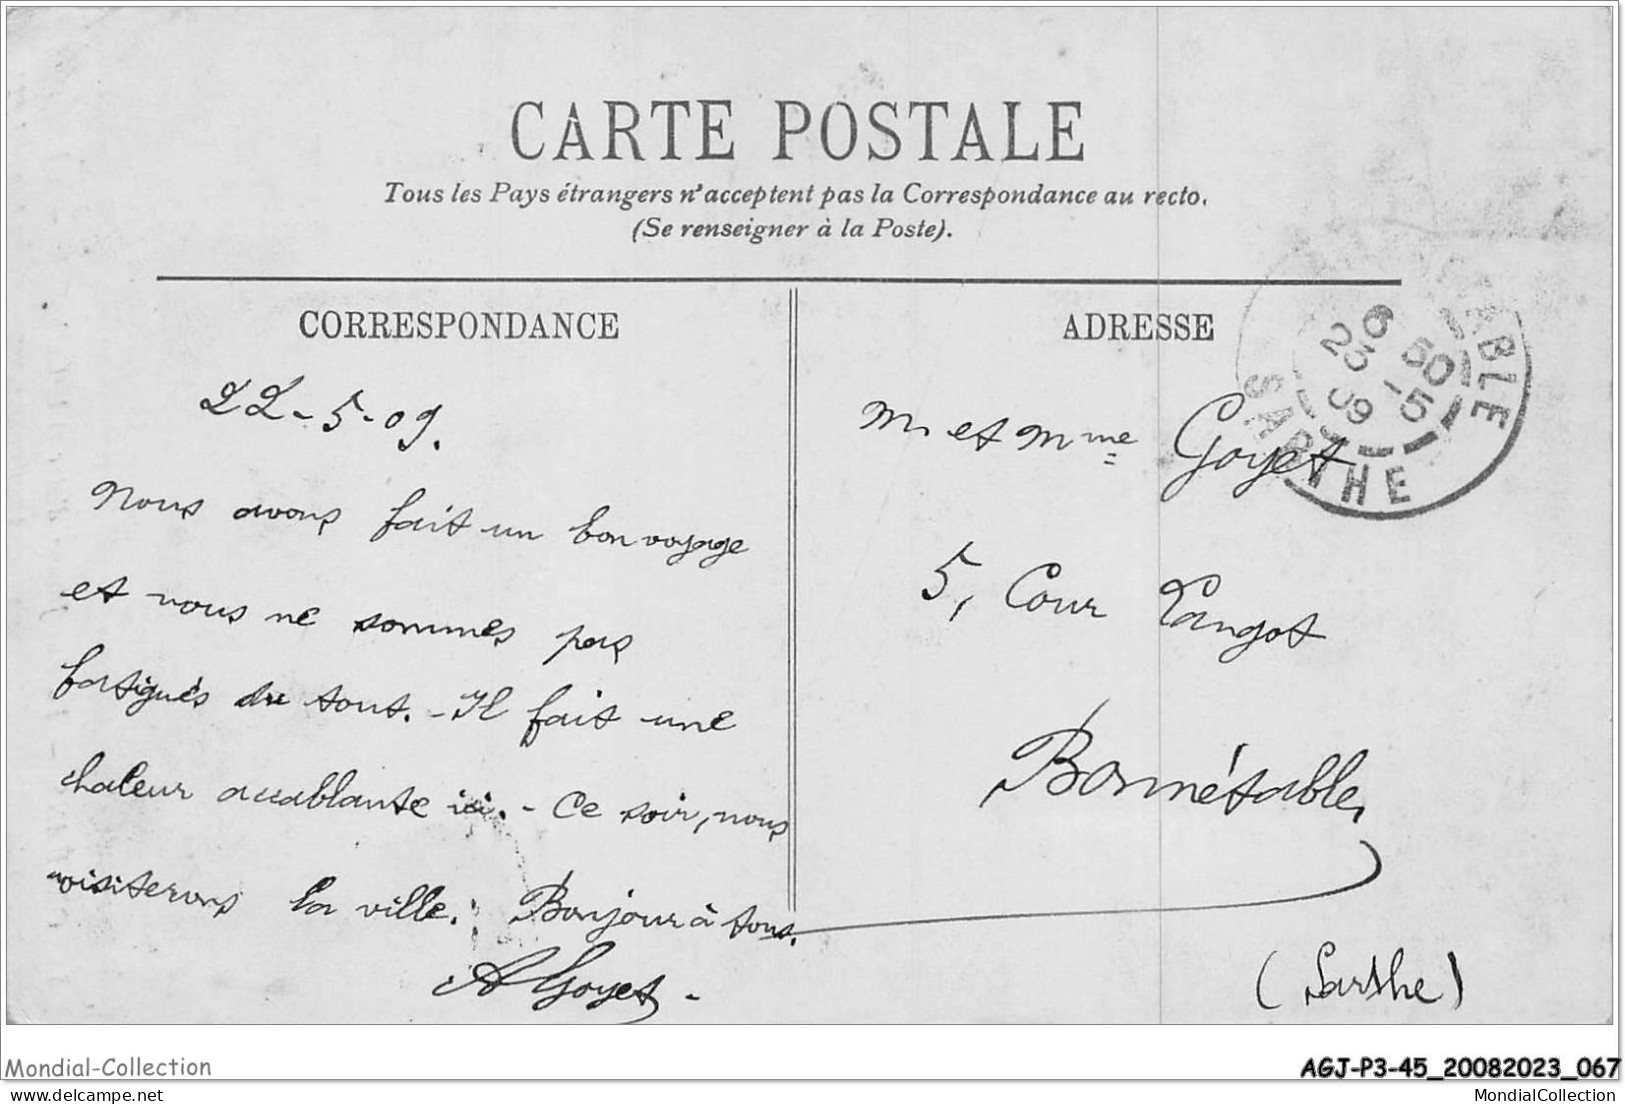 CARTE POSTALE
Tous les Pays étrangers n'acceptent pas la Correspondance au recto.
(Se renseigner à la Poste).
CORRESPONDANCE
22-5-09.
Nous avons fait un bon voyage
et nous ne sommes pas
fatigués du tout. - Il fait une
chaleur accablante ici. - Ce soir, nous
visiterons la ville. Bonjour à tous.
A Goyet -
ADRESSE
M. et Mme Goyet
5, Cour Langot
Bonnétable,
(Sarthe)
6 50
23 -5
09
SARTHE
Mondial-Collection
AGJ-P3-45_20082023_067
delcampe.net
MondialCollection